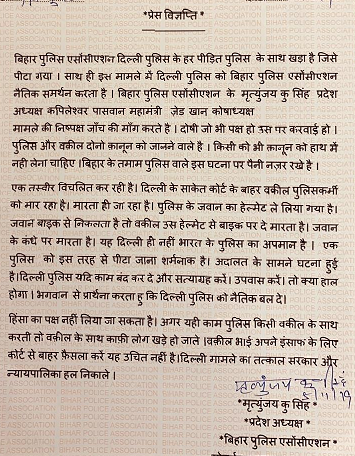 *प्रेस विज्ञप्ति*
बिहार पुलिस एसोसीएशन दिल्ली पुलिस के हर पीड़ित पुलिस के साथ खड़ा है जिसे
पीटा गया । साथ ही इस मामले में दिल्ली पुलिस को बिहार पुलिस एसोसीएशन
नैतिक समर्थन करता है । बिहार पुलिस एसोसीएशन के मृत्युंजय कु सिंह प्रदेश
अध्यक्ष कपिलेश्वर पासवान महामंत्री ज़ेड खान कोषाध्यक्ष
मामले की निष्पक्ष जाँच की माँग करते है । दोषी जो भी पक्ष हो उस पर करवाई हो ।
पुलिस और वकील दोनो क़ानून को जानने वाले है । किसी को भी क़ानून को हाथ में
नही लेना चाहिए ।बिहार के तमाम पुलिस वाले इस घटना पर पैनी नज़र रखे है ।
एक तस्वीर विचलित कर रही है। दिल्ली के साकेत कोर्ट के बाहर वकील पुलिसकर्मी
को मार रहा है। मारता ही जा रहा है। पुलिस के जवान का हेल्मेट ले लिया गया है।
जवान बाइक से निकलता है तो वकील उस हेल्मेट से बाइक पर दे मारता है। जवान
के कंधे पर मारता है। यह दिल्ली ही नहीं भारत के पुलिस का अपमान है । एक
पुलिस को इस तरह से पीटा जाना शर्मनाक है। अदालत के सामने घटना हुई
है।दिल्ली पुलिस यदि काम बंद कर दे और सत्याग्रह करें। उपवास करें। तो क्या हाल
होगा । भगवान से प्रार्थना करता हु कि दिल्ली पुलिस को नैतिक बल दे।
हिंसा का पक्ष नहीं लिया जा सकता है। अगर यही काम पुलिस किसी वकील के साथ
करती तो वकील के साथ काफ़ी लोग खड़े हो जाते ।वकील भाई अपने इंसाफ़ के लिए
कोर्ट से बाहर फ़ैसला करें यह उचित नहीं है।दिल्ली मामले का तत्काल सरकार और
न्यायपालिका हल निकाले ।
मृत्युंजय कु
*मृत्युंजय कु सिंह*
*प्रदेश अध्यक्ष*
*बिहार पुलिस एसोसीएशन*